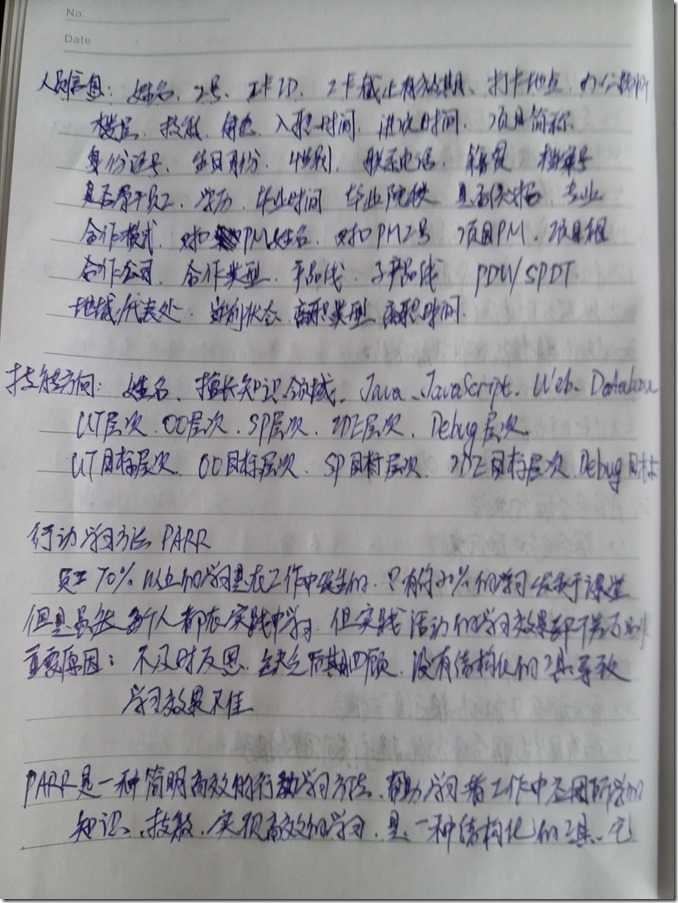 No.
Date
人员信息：姓名、工号、工卡ID、工卡截止有效期、打卡地点、办公
楼层、技能、角色、入职时间、进项时间、项目简称
身份证号、出生月份、性别、联系电话、籍贯 档案号
是否骨干员工、学历、毕业时间 毕业院校 是否 专业
合作模式、对口PM姓名、对口PM工号 项目PM、项目组
合作公司、合作类型、产品线、子产品线 PDU/SPDT
地域/代表处、在离状态、离职类型、离职时间.
技能方向：姓名、擅长知识领域、Java、JavaScript、Web、Database
UT层次、OO层次、SP层次、层次、Debug层次
UT目标层次、OO目标层次、SP目标层次、目标层次、Debug目标
行动学习方法 PARR
员工70%以上的学习是在工作中发生的，只有约20%的学习发于课堂
但是虽然每个人都在实践中学习，但实践活动的学习效果却
重要原因：不及时反思，缺乏后期回顾，没有结构化的工具导致
学习效果不佳
PARR是一种简明高效的行动学习方法，帮助学习者工作中应用所学的
知识、技能，实现高效的学习，是一种结构化的工具、它